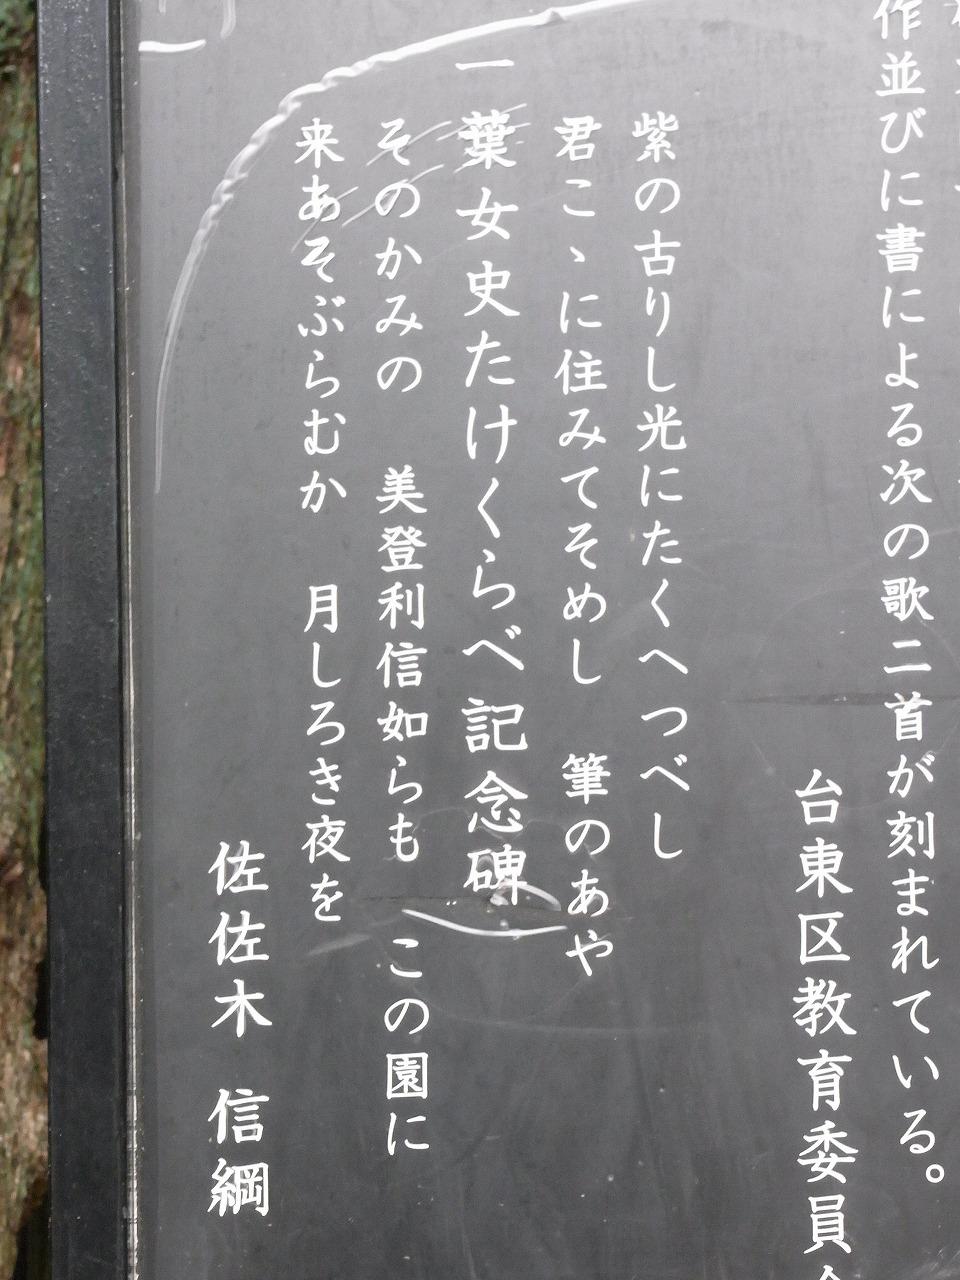 作並びに書による次の歌二首が刻まれている。
台東区教育委員
紫の古りし光にたくへつべし
君こゝに住みてそめし 筆のあや
一葉女史たけくらべ記念碑
そのかみの 美登利信如らも この園に
来あそぶらむか 月しろき夜を
佐佐木 信綱